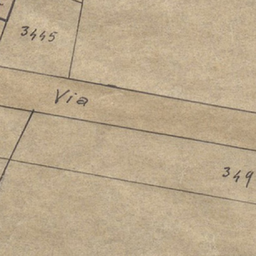 3445
Via
349